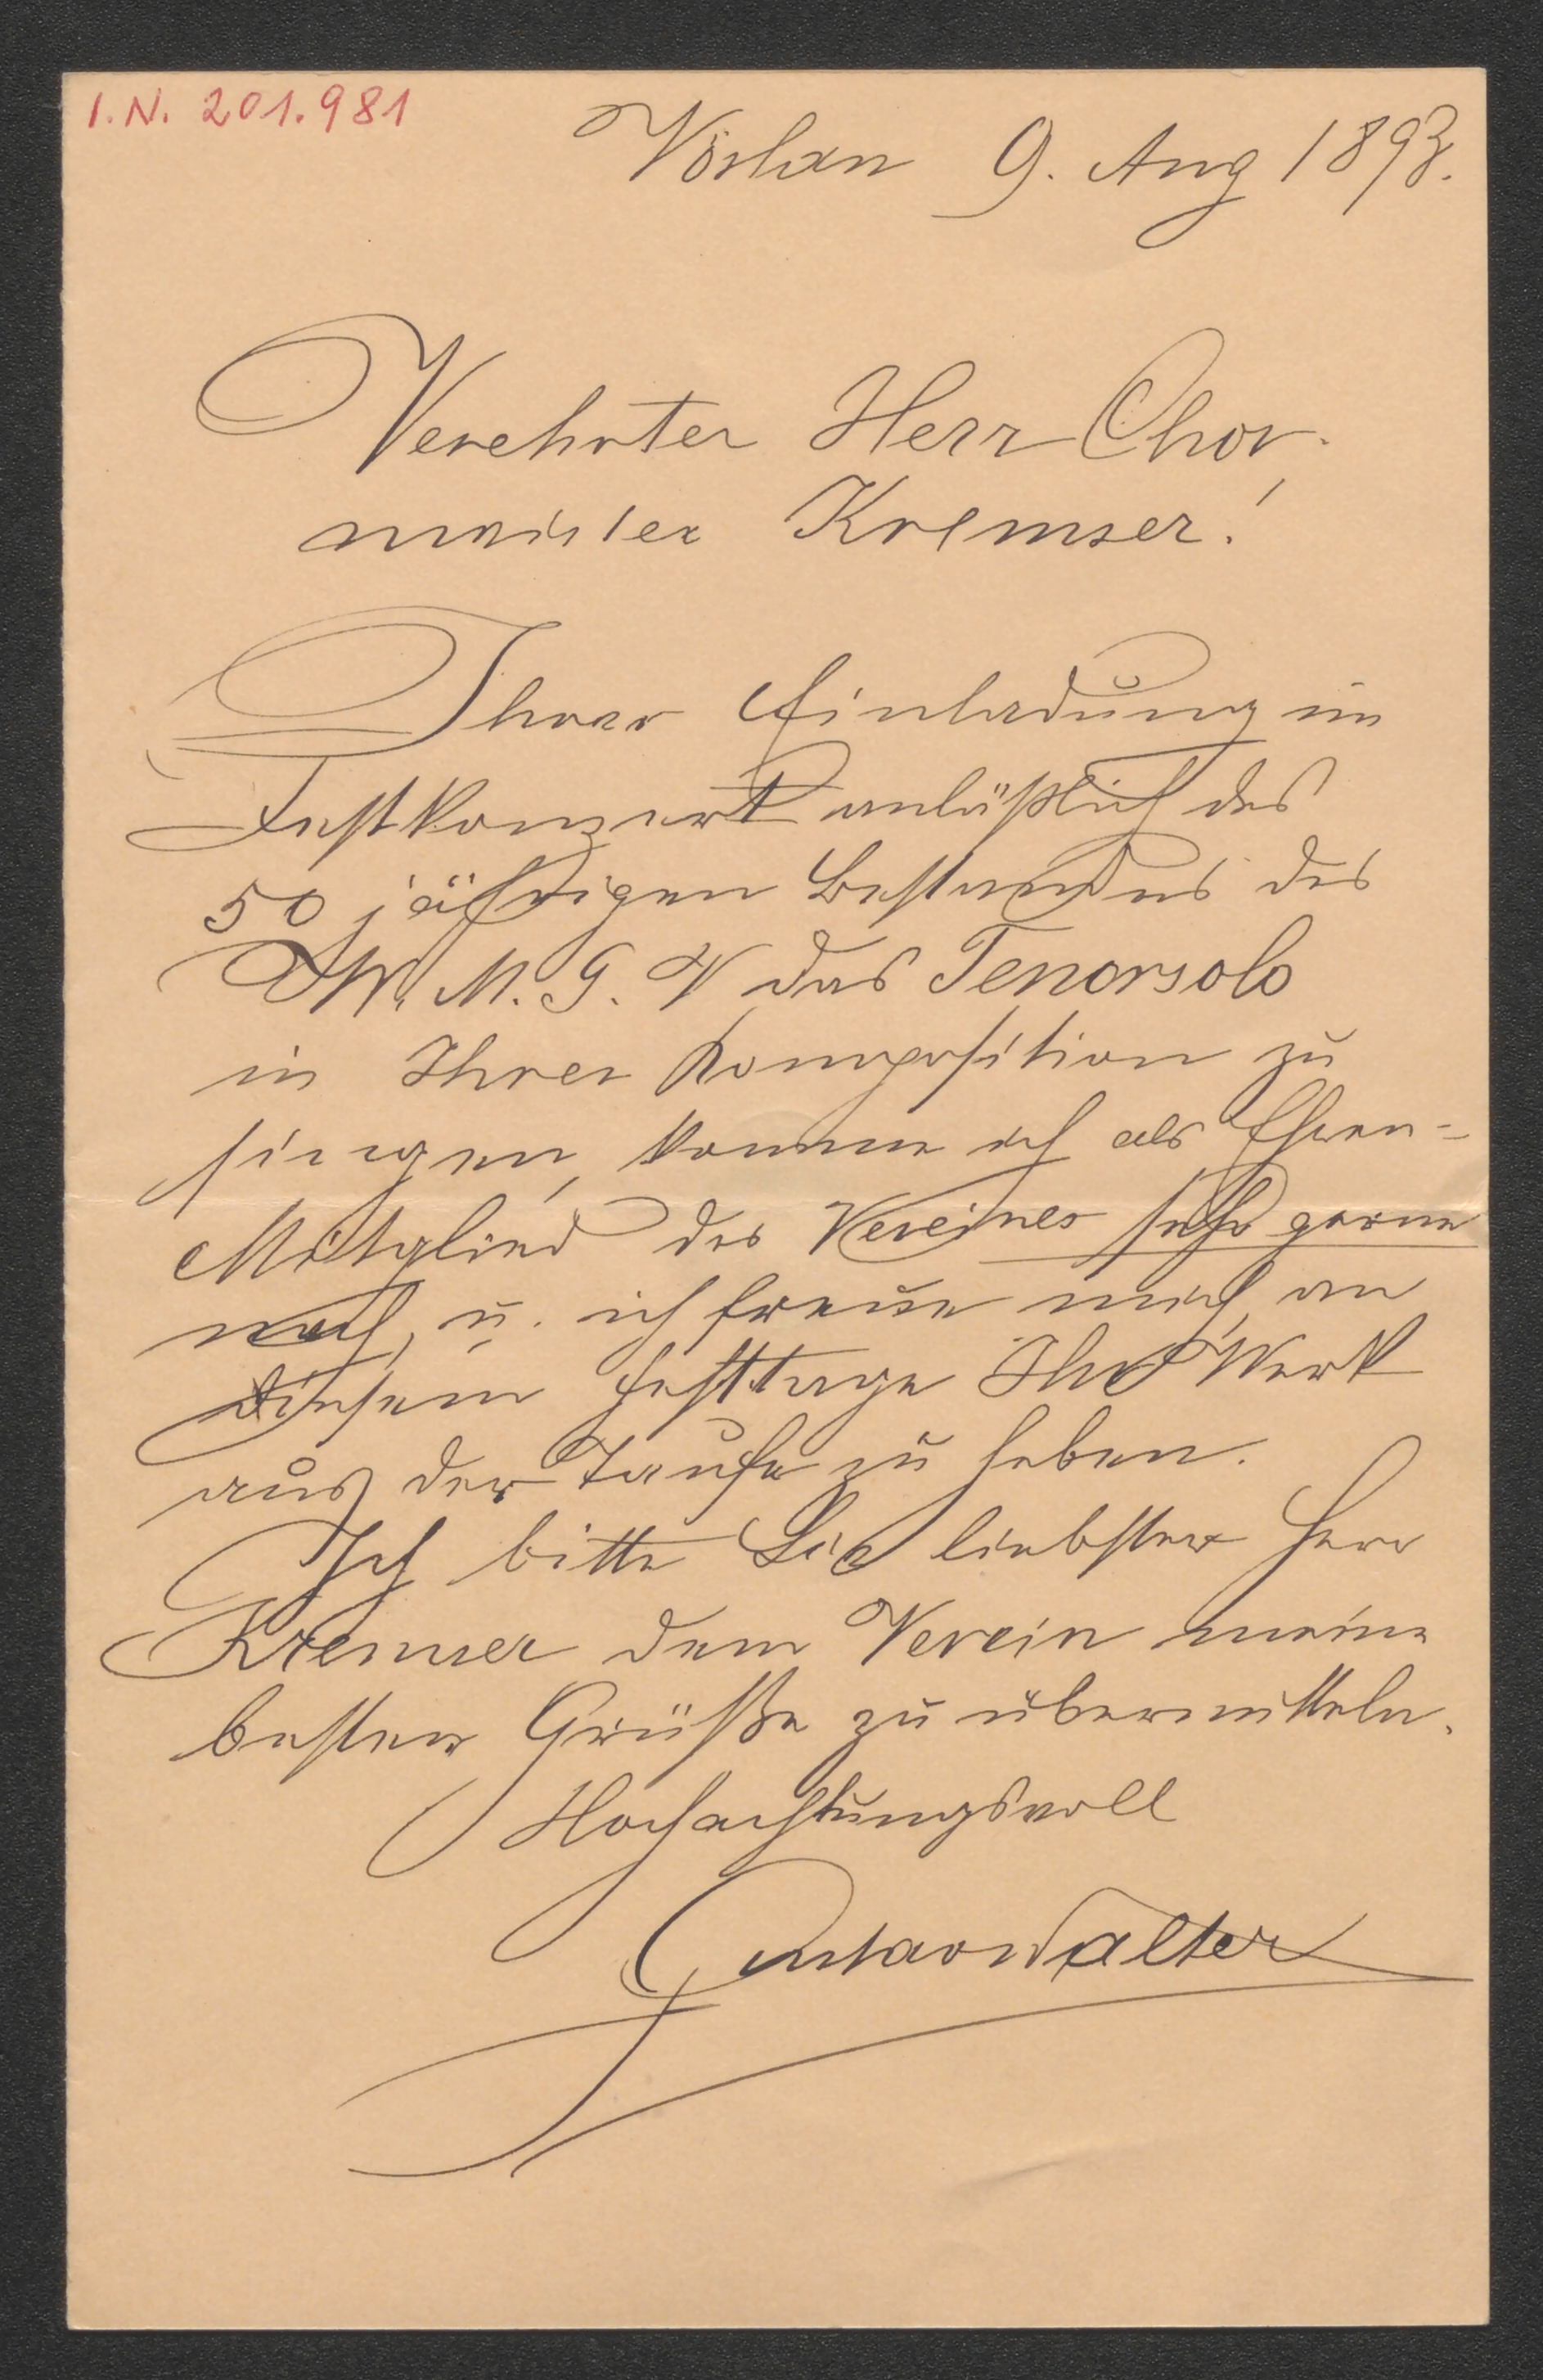 I.N. 201.981
Vöslau 9. Aug 1893.
Verehrter Herr Chor-
meister Kremser!
Ihrer Einladung im
Festkonzert anläßlich des
50 jährigen Bestandes des
W. M. G. V das Tenorsolo
in Ihrer Komposition zu
singen, komme ich als Ehren-
Mitglied des Vereines sehr gerne
nach, u. ich freue mich, an
diesem Festtage Ihr Werk
aus der Taufe zu heben.
Ich bitte Sie liebster Herr
Kremser dem Verein meine
besten Grüße zu übermitteln.
Hochachtungsvoll
Gustav Walter